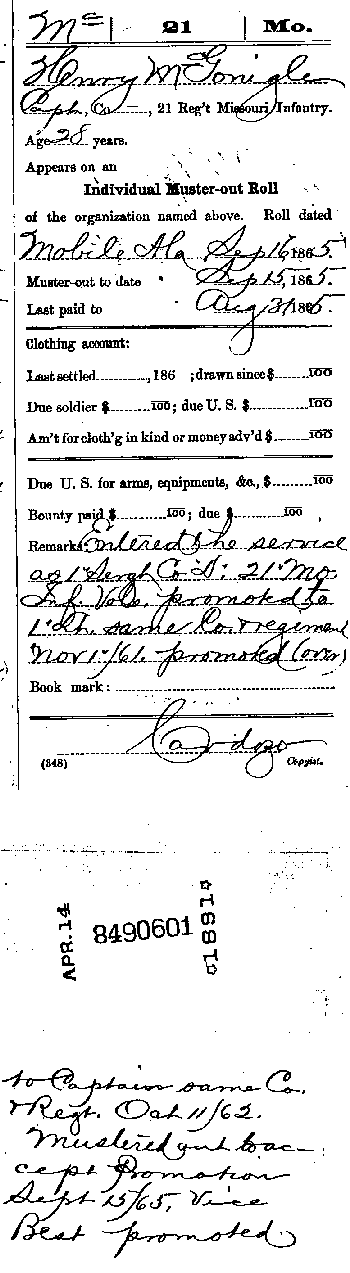 Mc | 21 | Mo.
Henry McGonigle
Capt., Co ——, 21 Reg't Missouri Infantry.
Age 28 years.
Appears on an
Individual Muster-out Roll
of the organization named above. Roll dated
Mobile Ala Sep 16, 1865.
Muster-out to date Sep 15, 1865.
Last paid to Aug 31, 1865.
Clothing account:
Last settled ......, 186 ; drawn since $ ...... 100
Due soldier $ ...... 100; due U. S. $ ...... 100
Am't for cloth'g in kind or money adv'd $ ...... 100
Due U. S. for arms, equipments, &c., $ ...... 100
Bounty paid $ ...... 100; due $ ...... 100
Remarks: Entered the service
as 1" Sergt Co D. 21" Mo
Inf Vols. promoted to
1" Lt. same Co. & regiment
Nov 1"/61. promoted (over)
Book mark:
Cardozo
(348) Copyist.
APR. 14 8490601 1881
to Captain same Co.
& Regt. Oct 11/62.
Mustered out to ac-
cept Promotion
Sept 15/65, Vice
Best promoted